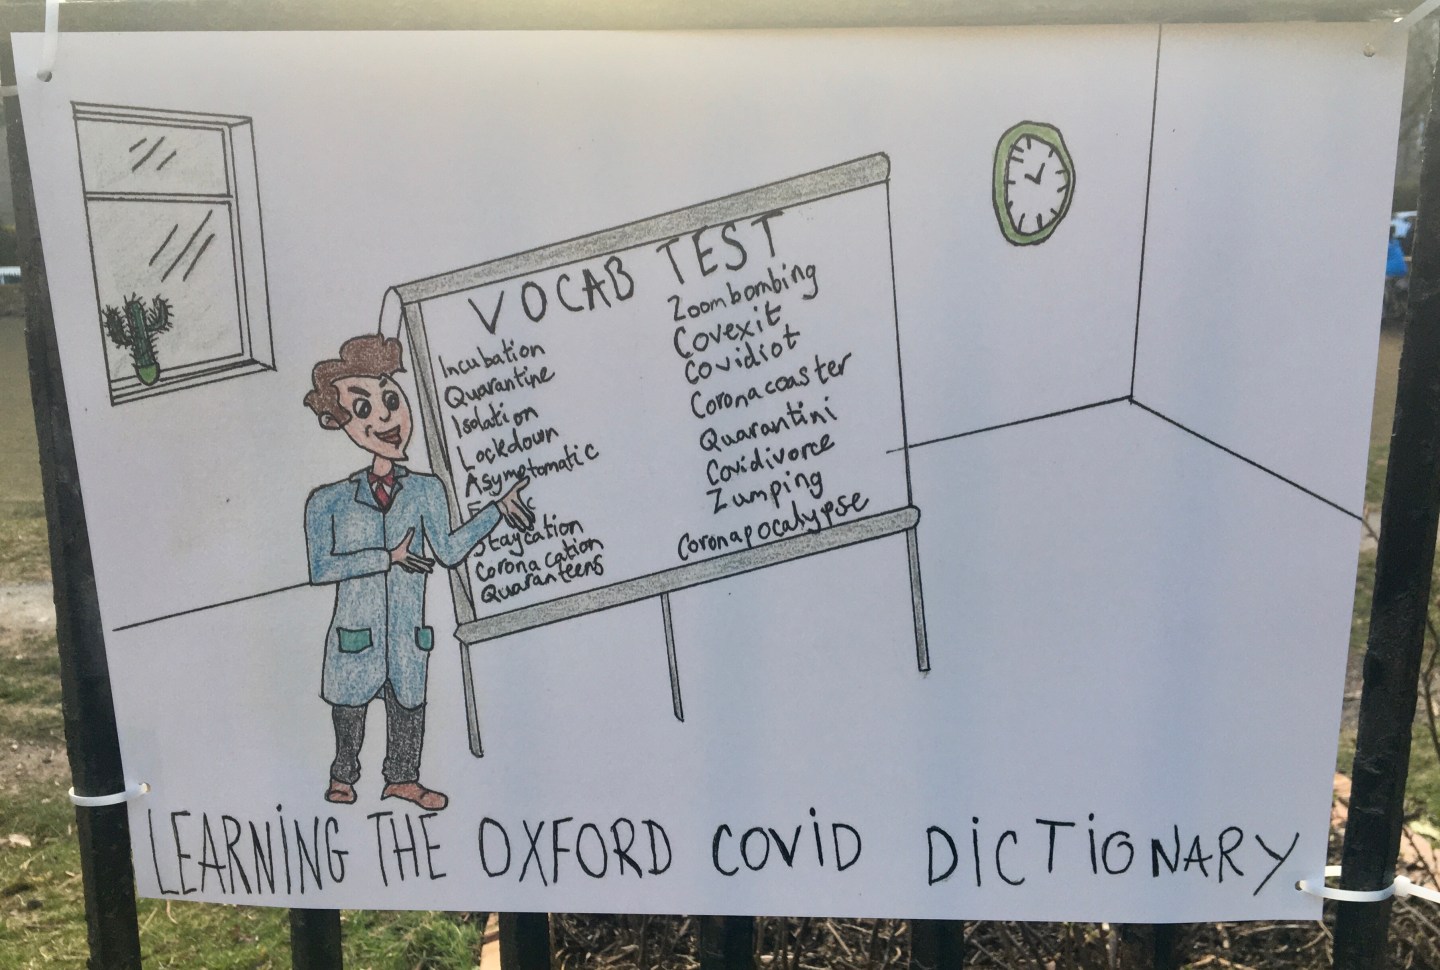 VOCAB TEST
Incubation
Quarantine
Isolation
Lockdown
Asymptomatic
Staycation
Coronacation
Quaranteens
Zoombombing
Covexit
Covidiot
Coronacoaster
Quarantini
Covidivorce
Zumping
Coronapocalypse
LEARNING THE OXFORD COVID DICTIONARY